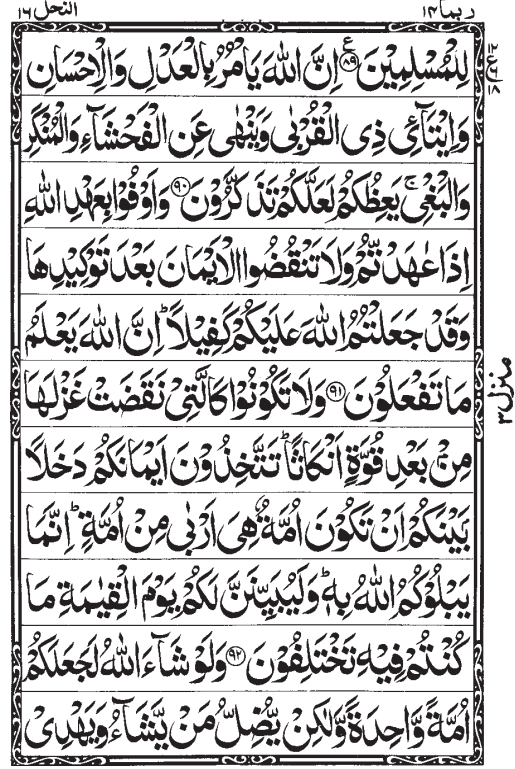 ربما ١٤
النحل ١٦
لِلْمُسْلِمِيْنَ ۟ۧ ﴿٨٩﴾ اِنَّ اللّٰهَ يَاْمُرُ بِالْعَدْلِ وَالْاِحْسَانِ
وَاِيْتَآئِ ذِي الْقُرْبٰى وَيَنْهٰى عَنِ الْفَحْشَآءِ وَالْمُنْكَرِ
وَالْبَغْيِ ۚ يَعِظُكُمْ لَعَلَّكُمْ تَذَكَّرُوْنَ ﴿٩٠﴾ وَاَوْفُوْا بِعَهْدِ اللّٰهِ
اِذَا عٰهَدْتُّمْ وَلَا تَنْقُضُوا الْاَيْمَانَ بَعْدَ تَوْكِيْدِهَا
وَقَدْ جَعَلْتُمُ اللّٰهَ عَلَيْكُمْ كَفِيْلًا ؕ اِنَّ اللّٰهَ يَعْلَمُ
مَا تَفْعَلُوْنَ ﴿٩١﴾ وَلَا تَكُوْنُوْا كَالَّتِيْ نَقَضَتْ غَزْلَهَا
مِنْۢ بَعْدِ قُوَّةٍ اَنْكَاثًا ؕ تَتَّخِذُوْنَ اَيْمَانَكُمْ دَخَلًۢا
بَيْنَكُمْ اَنْ تَكُوْنَ اُمَّةٌ هِيَ اَرْبٰى مِنْ اُمَّةٍ ؕ اِنَّمَا
يَبْلُوْكُمُ اللّٰهُ بِهٖ ؕ وَلَيُبَيِّنَنَّ لَكُمْ يَوْمَ الْقِيٰمَةِ مَا
كُنْتُمْ فِيْهِ تَخْتَلِفُوْنَ ﴿٩٢﴾ وَلَوْ شَآءَ اللّٰهُ لَجَعَلَكُمْ
اُمَّةً وَّاحِدَةً وَّلٰكِنْ يُّضِلُّ مَنْ يَّشَآءُ وَيَهْدِيْ
منزل ٣